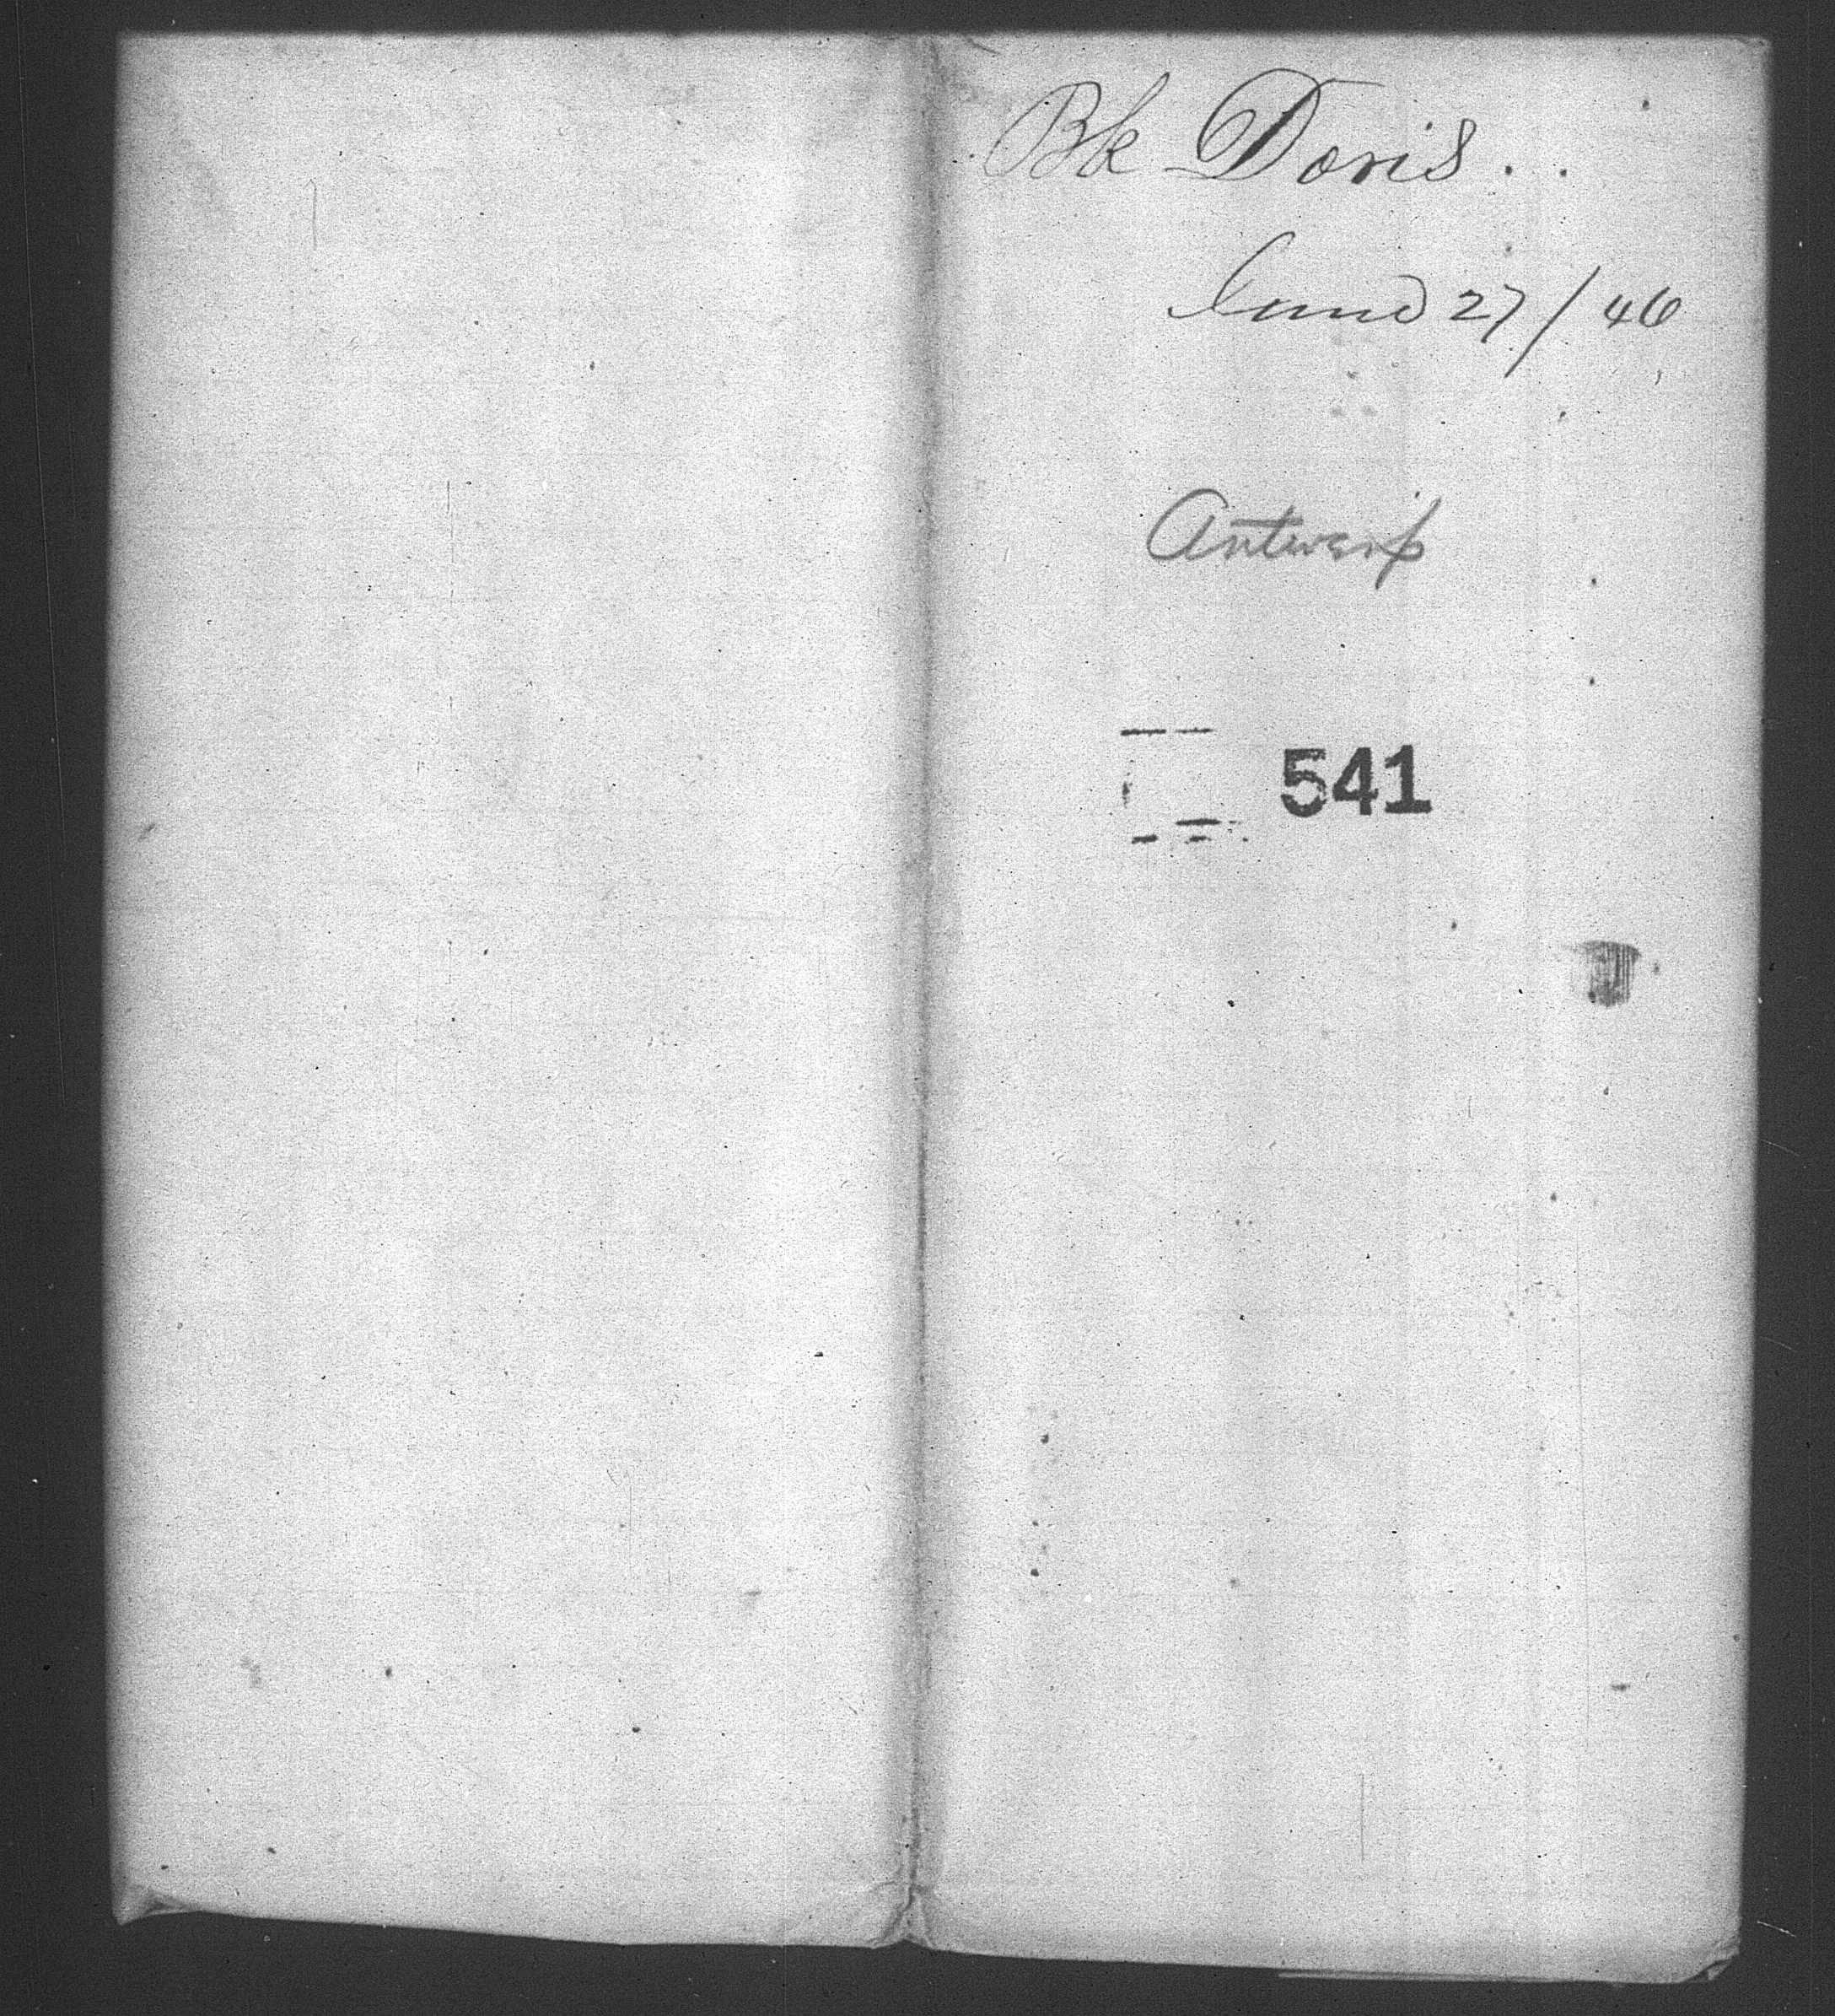 Bk Doris.
June 27/46
Antwerp
541